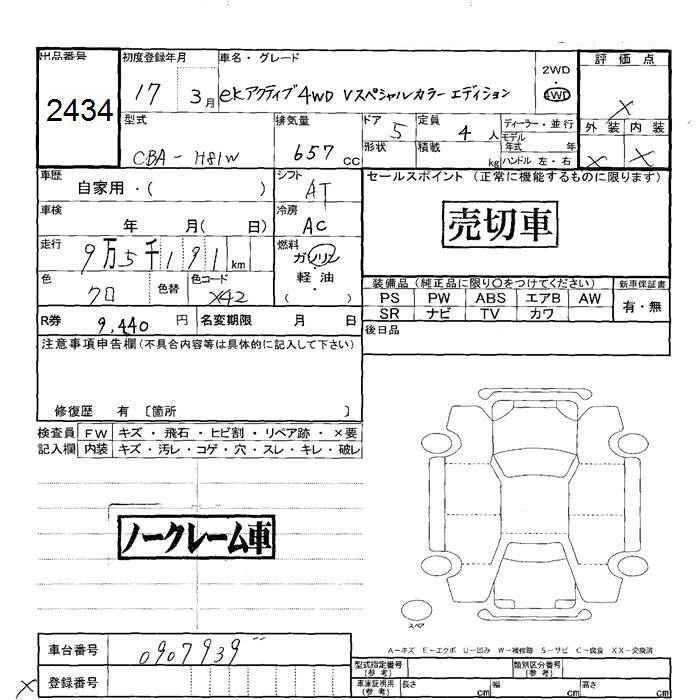 出品番号
2434
初度登録年月
17 3月
車名・グレード
ekアクティブ4WD Vスペシャルカラーエディション
2WD
4WD
評価点
X
外装 内装
X X
型式
CBA-H81W
排気量
657 cc
ドア 5
形状
定員 4 人
積載 kg
ディーラー・並行
モデル
年式 年
ハンドル 左・右
車歴
自家用・( )
シフト
AT
車検
年 月( 日)
冷房
AC
走行
9万5千191km
燃料
ガソリン
軽・油
( )
色
クロ
色替
色コード
X42
セールスポイント(正常に機能するものに限ります)
売切車
装備品(純正品に限り○をつけてください)
新車保証書
PS PW ABS エアB AW
SR ナビ TV カワ
有・無
R券 9,440 円
名変期限 月 日
後日品
注意事項申告欄(不具合内容等は具体的に記入して下さい)
修復歴 有 〔箇所 〕
検査員
記入欄
FW キズ・飛石・ヒビ割・リペア跡・×要
内装 キズ・汚レ・コゲ・穴・スレ・キレ・破レ
ノークレーム車
スペア
A-キズ E-エクボ U-凹み W-補修跡 S-サビ C-腐食 XX-交換済
車台番号
0907939
登録番号
X
型式指定番号
(参考)
類別区分番号
(参考)
車庫証明用
(参考)
長さ cm
幅 cm
高さ cm